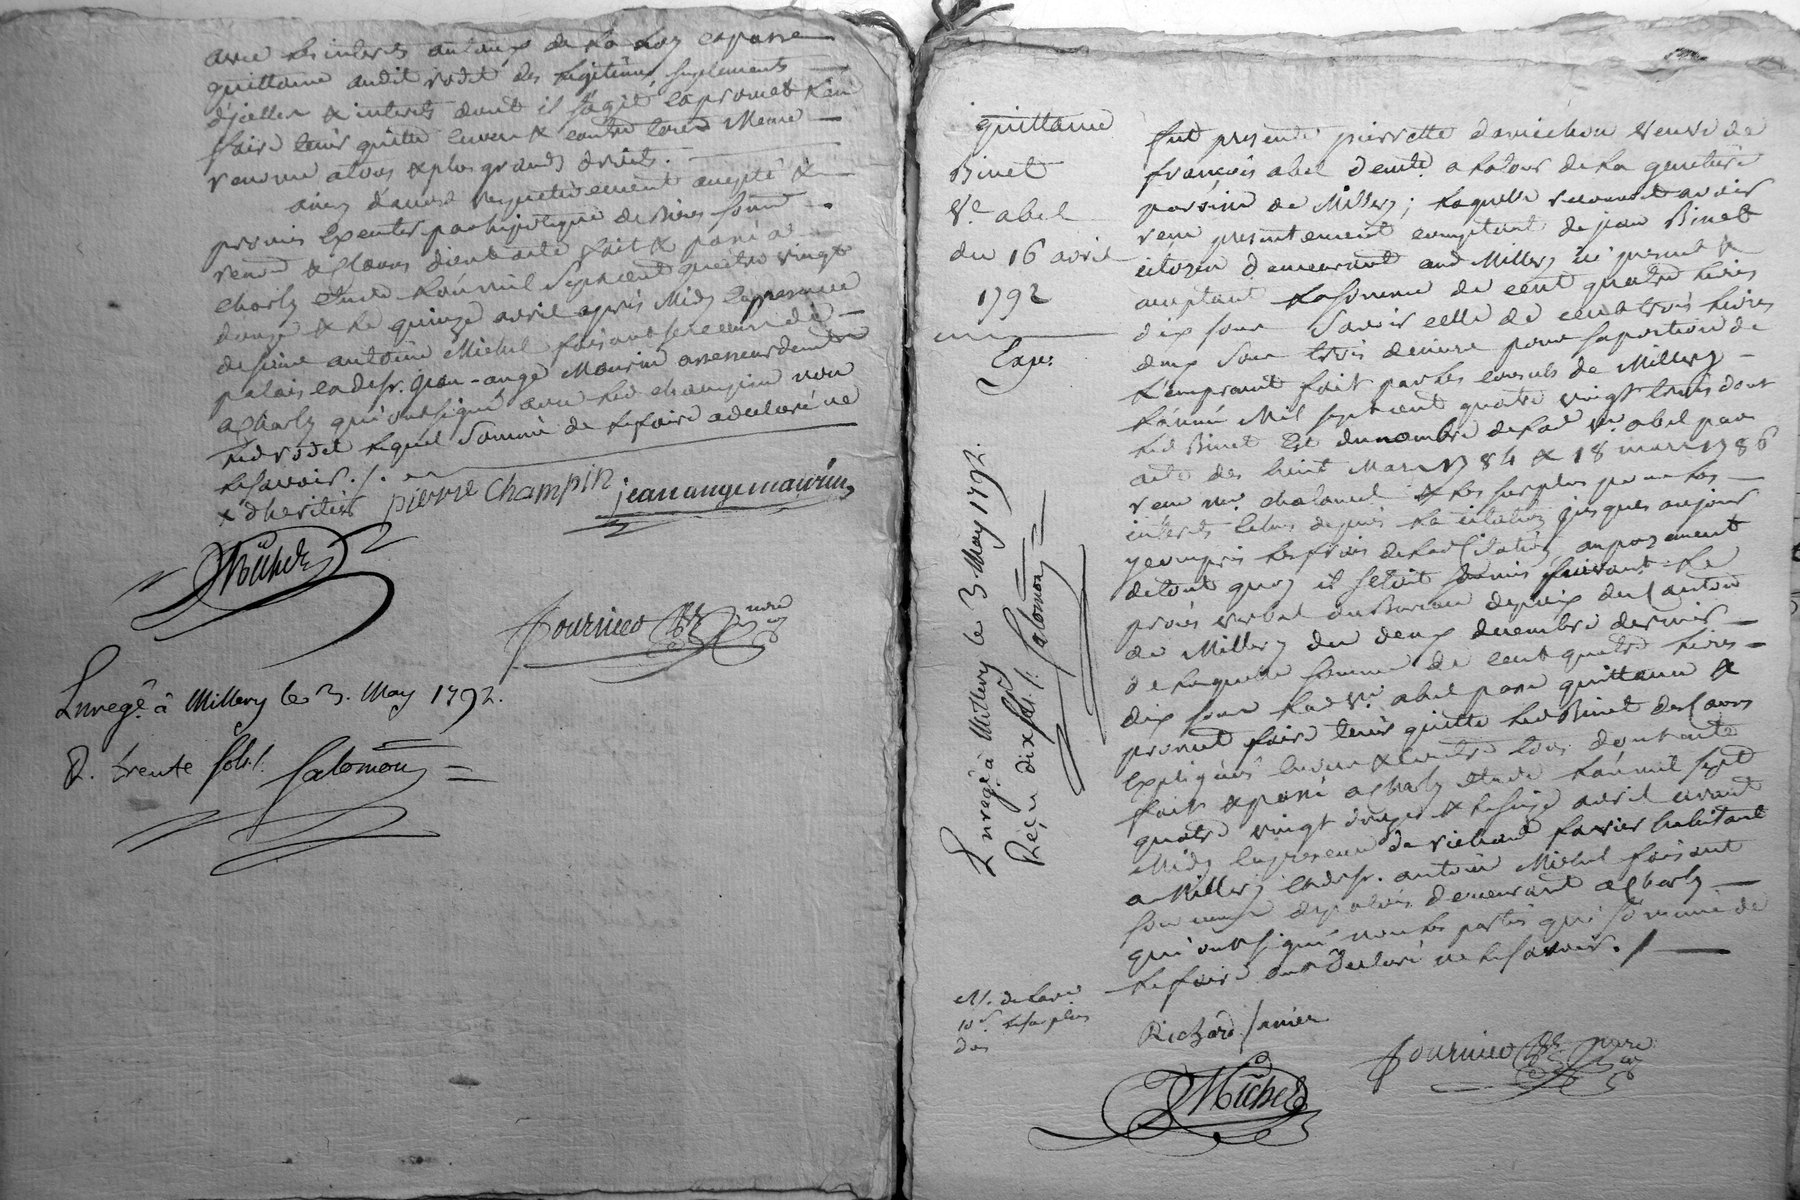 avec les interets au taux de la loy et passe
quittance audit rodet des legitime suplements
d'icelle & interets dont il s'agit et promet l'en
faire tenir quitte envers & contre tous Meme
renonce a tous & plus grands droits.
ainsy d'accord respectivement accepté &
promis executer par hipoteque de biens soum
renon & clauses dont acte fait & passé a
charly etude l'an mil sept cent quatre vingt
douze & le quinze avril après Midy en presence
de sieur antoine Michel faisant sa demeure de
palais et de sr. jean-ange Maurin assesseur demeu
a Charly qui ont signé avec led champin non
led rodet lequel sommé de le faire a declaré ne
le savoir ./.
x d'heritier pierre Champin jean ange maurin
AMichel
fournier nore
Enregé. à Millery le 3. May 1792.
R. trente sols. Salomon
quittance
Binet
Ve. abel
du 16 avril
1792
Exp.
fut presente pierrette veuve de
françois abel demte. a la tour de la
paroisse de Millery; laquelle reconnoit avoir
recu presentement comptant de jean Binet
citoyen demeurant aud Millery ici present &
acceptant la somme de cent quatre livres
dix sous savoir celle de cent trois livres
deux sous trois deniers pour sa portion de
l'emprunt fait par les consuls de Millery
l'année Mil sept cent quatre vingt trois dont
led Binet est du nombre de lad ve. abel par
acte des huit Mars 1784 & 18 mars 1786
recu me. chalamel & le surplus pour les
interets echus depuis la citation jusques aujour
y compris les frais de lad citation, au payement
de tout quoy il s'etoit soumis suivant le
procés verbal du Bureau de paix du Canton
de Millery du deux decembre dernier
de laquelle somme de cent quatre livres
dix sous lad ve. abel passe quittance &
promet faire tenir quitte led Binet des causes
expliquées envers & contre tous dont acte
fait & passé a Charly etude l'an mil sept
quatre vingt douze & le seize avril avant
Midy en presence de richard favier habitant
a Millery et de sr. antoine Michel faisant
sa demeure de palais demeurant a Charly
qui ont signé non les parties qui sommé de
le faire ont declaré ne le savoir ./.
Enregé. à Millery le 3. May 1792.
Reçu dix sols ./. Salomon
10 s. le surplus
Richard favier
AMichel
fournier nore